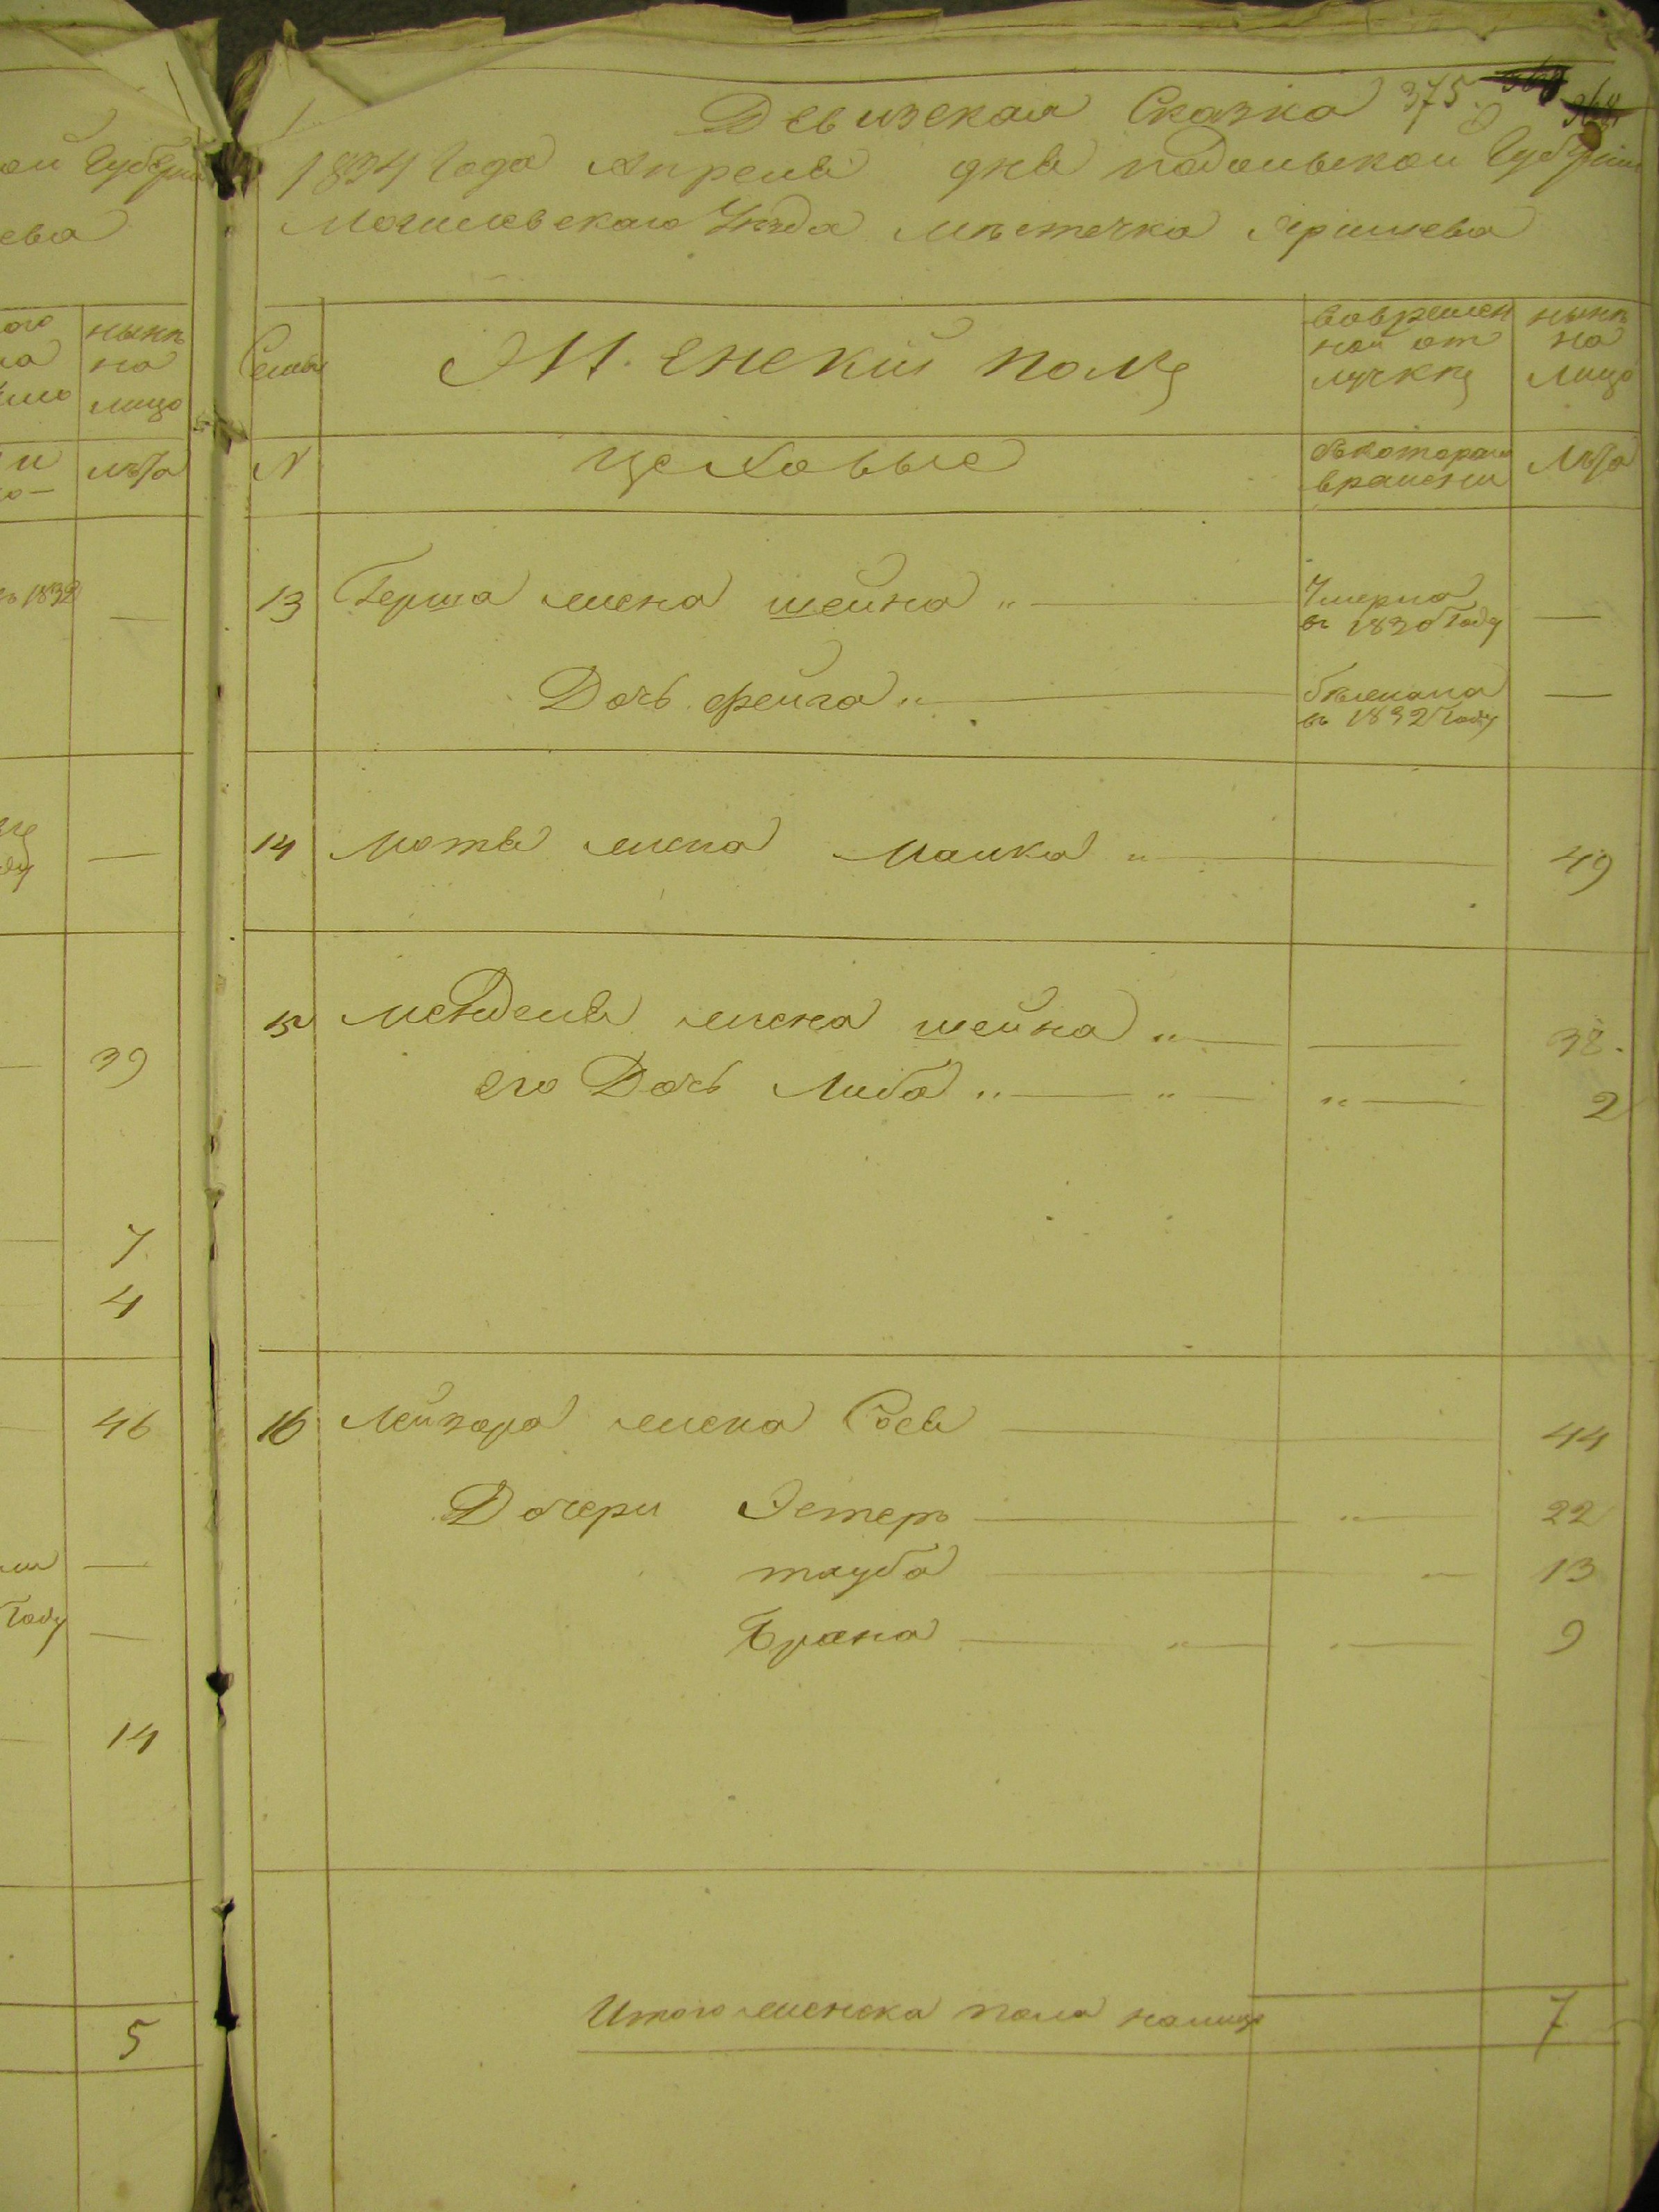 ой Губерни
ева
ныне
на
лицо
лѣта
ъ 1832
—
39
7
4
46
Году
14
5
Девизская Сказка 375.
1834 Года Апреля дня подольской Губернии
Могилевскаго Уезда местечка Яришева
Семьи
Женский полъ
вовремен
ной от
лучкѣ
ныне
на
лицо
N
цеховые
съкотораго
времени
Лѣта
13 Герша жена шейна „ — Умерла
въ 1830 Году —
Дочь фейга „ — Бежала
въ 1832 Году —
14 Мотя жена Малка „ — 49
15 Менделя жена шейна „ — 38.
его Дочь Либа „ — „ — „ — 2
16 Лейзора жена Сося — 44
Дочери Эстеръ — „ — 22
тауба — 13
Брана — „ — „ — 9
Итого женска пола налицо 7